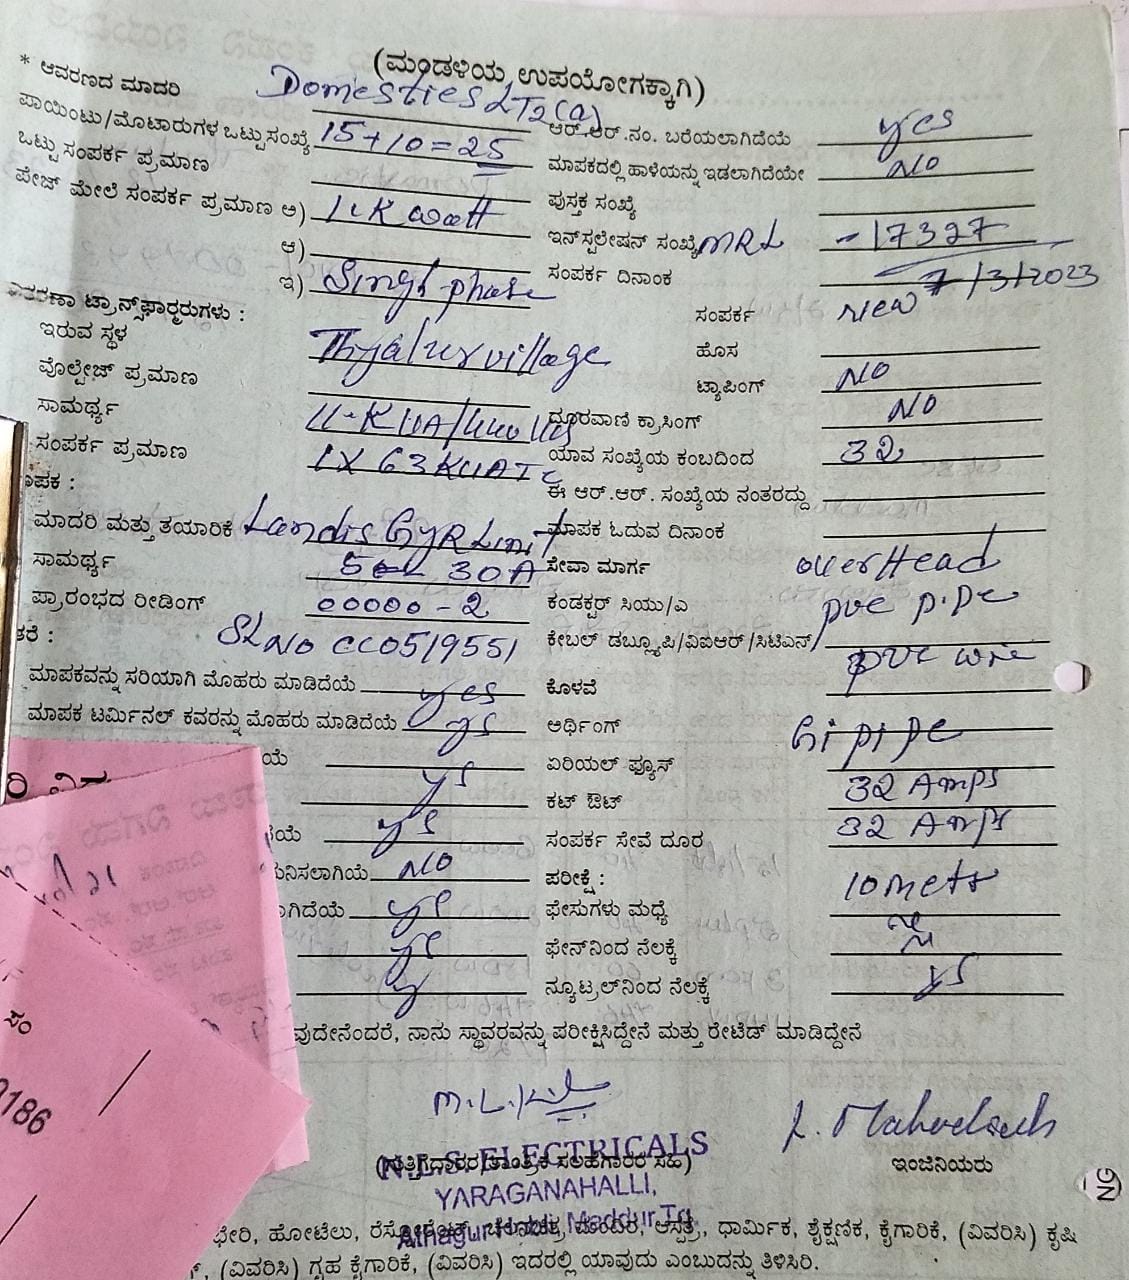 (ಮಂಡಳಿಯ ಉಪಯೋಗಕ್ಕಾಗಿ)
* ಆವರಣದ ಮಾದರಿ Domestics LT2(a)
ಪಾಯಿಂಟು/ಮೋಟಾರುಗಳ ಒಟ್ಟು ಸಂಖ್ಯೆ 15+10=25
ಒಟ್ಟು ಸಂಪರ್ಕ ಪ್ರಮಾಣ
ಪೇಜ್ ಮೇಲೆ ಸಂಪರ್ಕ ಪ್ರಮಾಣ ಅ) 1.K watt
ಆ)
ಇ) Singl phase
ವಿತರಣಾ ಟ್ರಾನ್ಸ್‌ಫಾರ್ಮರುಗಳು :
ಇರುವ ಸ್ಥಳ Thyalur village
ವೊಲ್ಟೇಜ್ ಪ್ರಮಾಣ
ಸಾಮರ್ಥ್ಯ 11-KVA/
ಸಂಪರ್ಕ ಪ್ರಮಾಣ 1X63KVA
ಮಾಪಕ :
ಮಾದರಿ ಮತ್ತು ತಯಾರಿಕೆ Landis GYR
ಸಾಮರ್ಥ್ಯ 30A
ಪ್ರಾರಂಭದ ರೀಡಿಂಗ್ 00000-2
SLNO CC0519551
ಮಾಪಕವನ್ನು ಸರಿಯಾಗಿ ಮೊಹರು ಮಾಡಿದೆಯೆ yes
ಮಾಪಕ ಟರ್ಮಿನಲ್ ಕವರನ್ನು ಮೊಹರು ಮಾಡಿದೆಯೆ ys
ಯೆ
ys
ಯೆ ys
ನಿಸಲಾಗಿಯೆ NO
ಗಿದೆಯೆ ys
ys
ಆರ್.ಆರ್.ನಂ. ಬರೆಯಲಾಗಿದೆಯೆ yes
ಮಾಪಕದಲ್ಲಿ ಹಾಳೆಯನ್ನು ಇಡಲಾಗಿದೆಯೇ NO
ಪುಸ್ತಕ ಸಂಖ್ಯೆ
ಇನ್‌ಸ್ಟಲೇಷನ್ ಸಂಖ್ಯೆ MRL -17327
ಸಂಪರ್ಕ ದಿನಾಂಕ 7/3/2023
ಸಂಪರ್ಕ New
ಹೊಸ
ಟ್ಯಾಪಿಂಗ್ NO
ದೂರವಾಣಿ ಕ್ರಾಸಿಂಗ್ NO
ಯಾವ ಸಂಖ್ಯೆಯ ಕಂಬದಿಂದ 32
ಈ ಆರ್.ಆರ್. ಸಂಖ್ಯೆಯ ನಂತರದ್ದು
ಮಾಪಕ ಓದುವ ದಿನಾಂಕ
ಸೇವಾ ಮಾರ್ಗ overHead
ಕಂಡಕ್ಟರ್ ಸಿಯು/ಎ pvc pipe
ಕೇಬಲ್ ಡಬ್ಲ್ಯೂಪಿ/ವಿಐಆರ್/ಸಿಟಿಎಸ್/ pvc wire
ಕೊಳವೆ
ಅರ್ಥಿಂಗ್ Gi pipe
ಏರಿಯಲ್ ಫ್ಯೂಸ್ 32 Amps
ಕಟ್ ಔಟ್ 32 Amps
ಸಂಪರ್ಕ ಸೇವೆ ದೂರ
ಪರೀಕ್ಷೆ : 10 metr
ಫೇಸುಗಳು ಮಧ್ಯೆ
ಫೇಸ್‌ನಿಂದ ನೆಲಕ್ಕೆ ys
ನ್ಯೂಟ್ರಲ್‌ನಿಂದ ನೆಲಕ್ಕೆ
ವುದೇನೆಂದರೆ, ನಾನು ಸ್ಥಾವರವನ್ನು ಪರೀಕ್ಷಿಸಿದ್ದೇನೆ ಮತ್ತು ರೇಟೆಡ್ ಮಾಡಿದ್ದೇನೆ
N.L.S. ELECTRICALS
(ಗುತ್ತಿಗೆದಾರರ/ತಾಂತ್ರಿಕ ಸಲಹೆಗಾರರ ಸಹಿ)
ಇಂಜಿನಿಯರು
YARAGANAHALLI,
Athagur Hobli, Maddur Tq
ಧಾರ್ಮಿಕ, ಶೈಕ್ಷಣಿಕ, ಕೈಗಾರಿಕೆ, (ವಿವರಿಸಿ) ಕೃಷಿ
(ವಿವರಿಸಿ) ಗೃಹ ಕೈಗಾರಿಕೆ, (ವಿವರಿಸಿ) ಇದರಲ್ಲಿ ಯಾವುದು ಎಂಬುದನ್ನು ತಿಳಿಸಿರಿ.
ಸಂ
186
NG